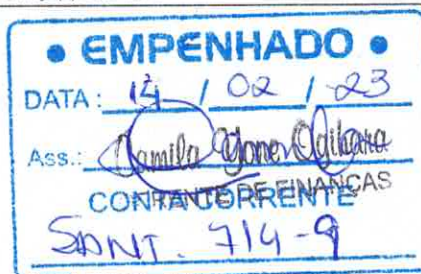 • EMPENHADO •
DATA: 14 / 02 / 23
Ass.: Camila Yone Ogihara
CONTA CORRENTE
DE FINANÇAS
SANT. 714-9